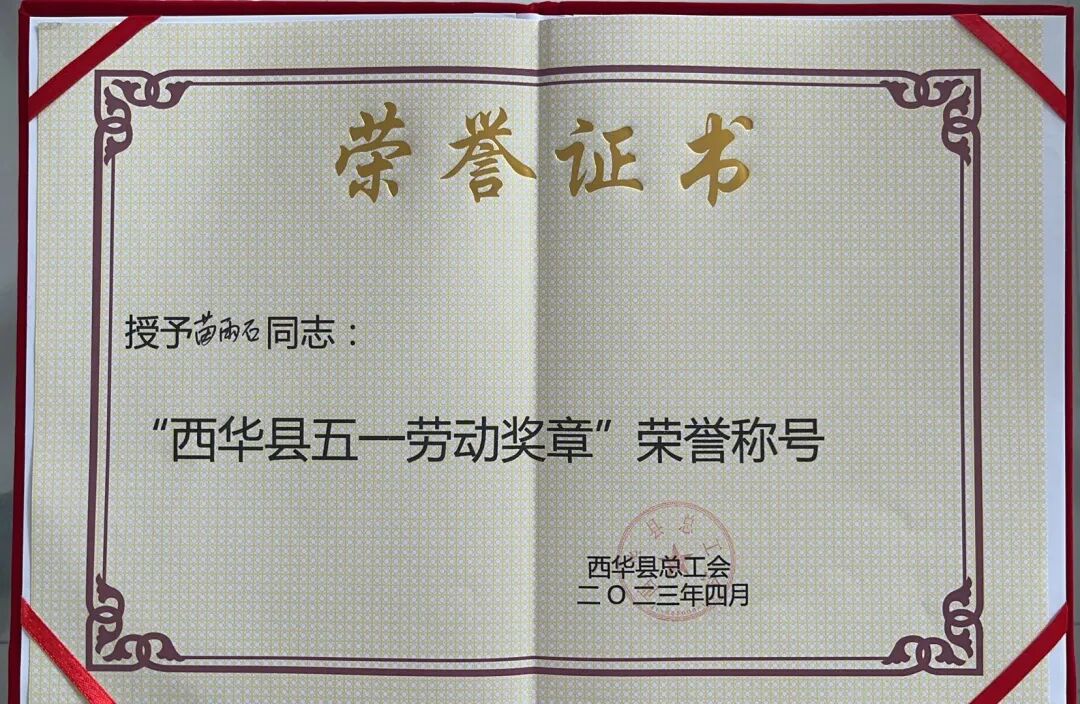 荣誉证书
授予苗雨石同志：
“西华县五一劳动奖章”荣誉称号
西华县总工会
二O二三年四月